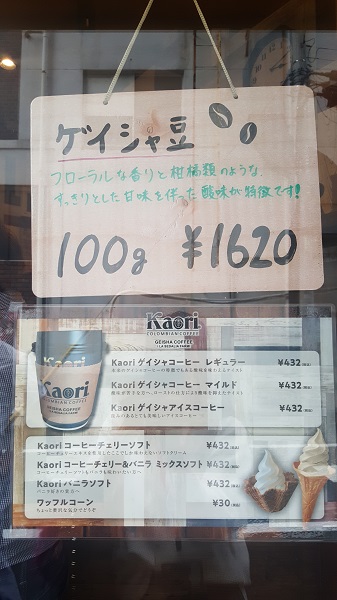 ゲイシャ豆
フローラルな香りと柑橘類のような、
すっきりとした甘味を伴った酸味が特徴です!
100g ¥1620
Kaori
COLOMBIAN COFFEE
GEISHA COFFEE
Kaori
COLOMBIAN COFFEE
GEISHA COFFEE
Kaori ゲイシャコーヒー レギュラー ¥432(税込)
Kaori ゲイシャコーヒー マイルド ¥432(税込)
Kaori ゲイシャアイスコーヒー ¥432(税込)
Kaori コーヒーチェリーソフト ¥432(税込)
Kaori コーヒーチェリー&バニラ ミックスソフト ¥432(税込)
コーヒーチェリーソフトもバニラも味わいたい方へ
Kaori バニラソフト ¥432(税込)
バニラ好きの貴方へ
ワッフルコーン ¥30(税込)
ちょっと贅沢な気分でどうぞ